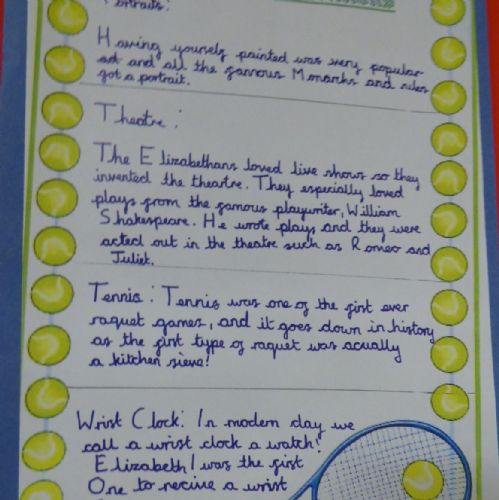 Portraits:
Having yourself painted was very popular
and all the famous Monarchs and rules
got a portrait.
Theatre:
The Elizabethans loved live shows so they
invented the theartre. They especially loved
plays from the gamous playwriter, William
Shakespeare. He wrote plays and they were
acted out in the theatre such as Romeo and
Juliet.
Tennis: Tennis was one of the first ever
raquet games, and it goes down in history
as the first type of raquet was acually
a kitchen sieve!
Wrist Clock: In modern day we
call a wrist clock a watch!
Elizabeth I was the first
One to recive a wrist